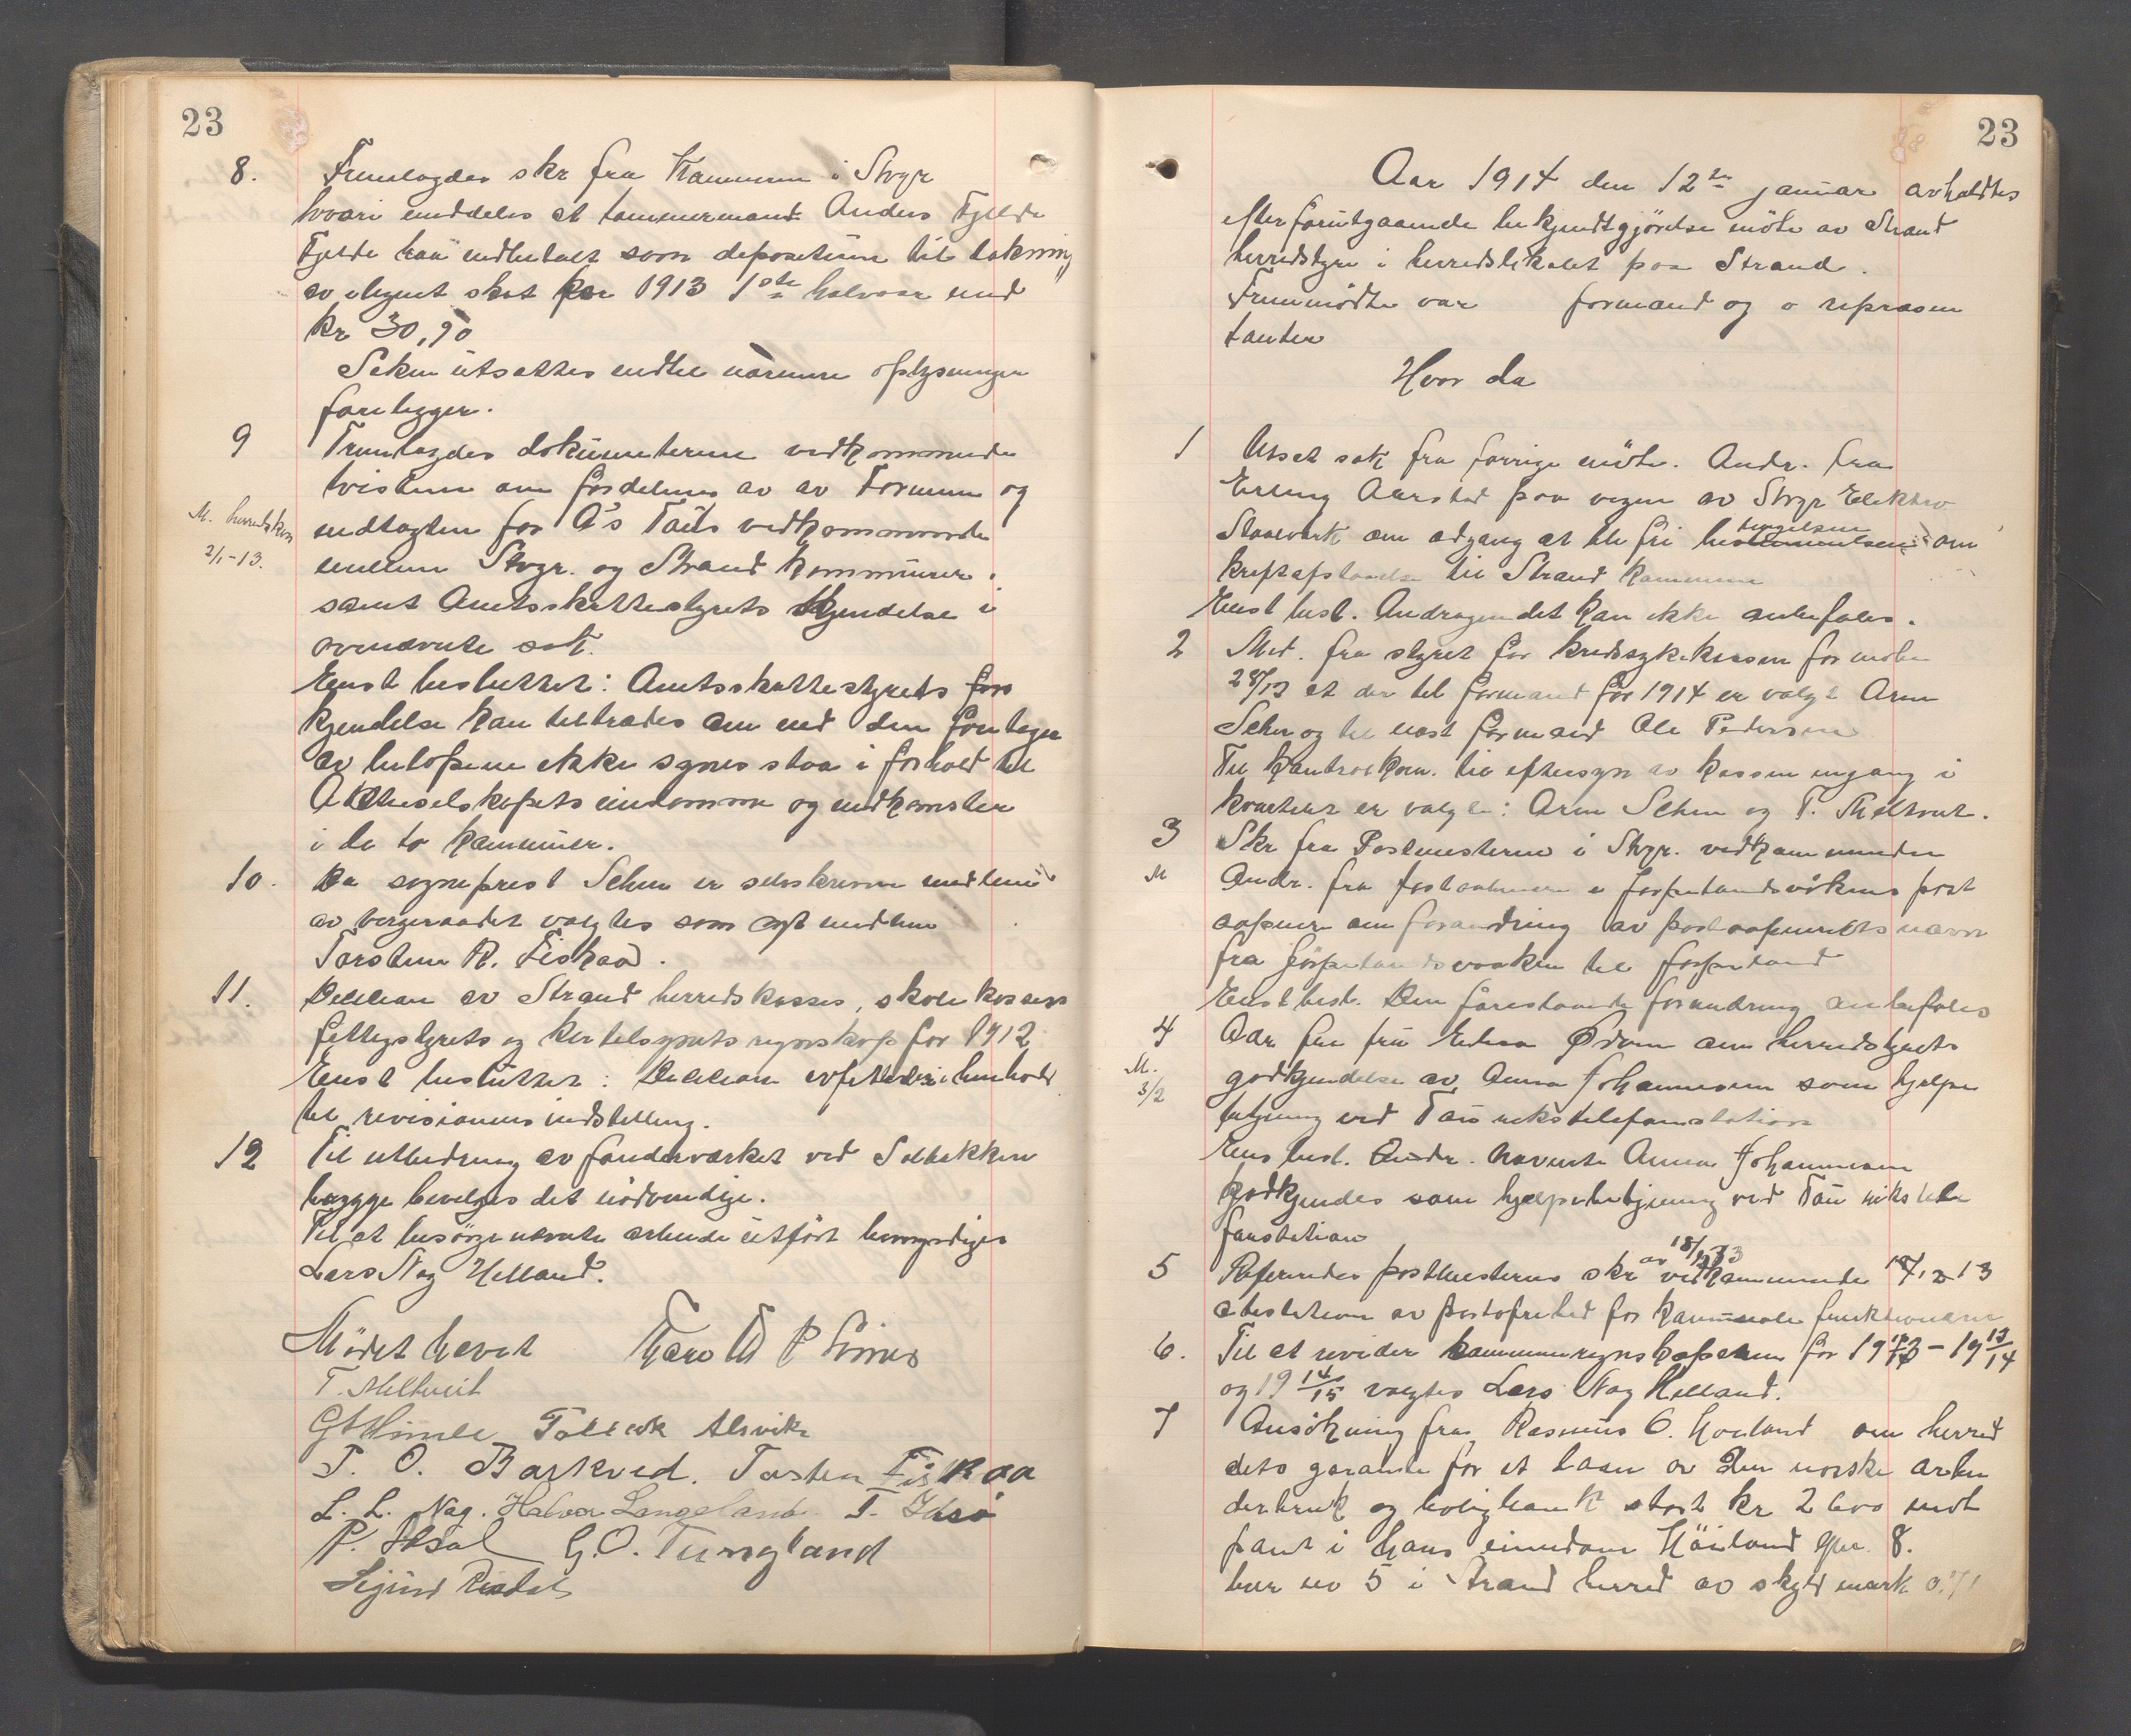 23
8. Fremlagdes skr fra Kæmneren i Stvgr
hvori meddeles at tømmermand Anders Fjelde
Fjelde har indbetalt som depositum til dækning
av elignet skat for 1913 1ste halvaar med
kr 30,90
Saken utsættes indtil nærmere oplysninger
foreligger.
9 Fremlagdes dokumenterne vedkommende
tvisten om fordelingen av av Formuen og
M. herredskas
2/1-13.
indtægten for A/s Tau's vedkommende
mellem Stvgr. og Strand kommuner.
samt Amtsskattestyrets kjendelse i
ovennævnte sak.
Enst besluttet: Amtsskattestyrets for
kjendelse kan tiltrædes om end den foretagen
av beløpene ikke synes staa i forhold til
Aktieselskapets eiendomme og indkomster
i de to kommuner.
10. Da sogneprest Sehm er selvskreven medlem
av vergeraadet valgtes som nyt medlem
Torsten R. Fiskaa.
11. Decision av Strand herredskasses, skolekasses
fattigstyrets og kirketilsynets regnskap for 1912
Enst besluttet: Decision avfattedes i henhold
til revisionens indstilling.
12 Til utbedring av fenderværket ved Solbakken
brygge bevilges det nødvendige.
Til at besørge nævnte arbeide utført bemyndiges
Lars Nag Helland.
Mødet hævet
T. Meltveit
G Himle Tollak Alsvik
T. O. Barkved. Torsten Fiskaa
L. L. Nag. Halvor Langeland. T. Idsø
P. Idsal G.O. Tungland
Sigurd Risdal
23
Aar 1914 den 12te januar avholdtes
efter forutgaaende bekjendtgjørelse møte av Strand
herredstyre i herredslokalet paa Strand.
Fremmødte var formand og o repræsen
tanter
Hvor da
1 Utsat sak fra forrige møte. Andr. fra
Erling Aarstad paa vegne av Stvgr Elektro
Staalverk om adgang at bli fri bestemmelsen om
tingelsen
kraftafstaaelse til Strand kommune
Enst besl. Andragendet kan ikke anbefales.
2 Med. fra styret for kredssykekassen for møte
28/12 at der til formand for 1914 er valgt Arne
Sehm og til næst formand Ole Pedersen
Til kontrolkom. til eftersyn av kassen engang i
kvartalet er valgte: Arne Sehm og T. Meltveit.
3 Skr fra Postmesteren i Stvgr. vedkommende
M Andr. fra postaapneren i Jørpelandsvåkens post
aapneri om forandring av postaapneriets navn
fra Jørpelandsvaaken til Jørpeland
Enst besl. Den foreslaaede forandring anbefales
4 Adr fra fru Ødven om herredstyrets
M.
3/2
godkjendelse av Anna Johannesen som hjelpe
betjening ved Tau rikstelefonstation
Enst besl. Andr. nævnte Anna Johannesen
godkjendes som hjelpebetjening ved Tau rikstele
fonstation
5 Refereredes postmesterens skr av 18/12 13 vedkommende 18/12 13
attestation av portofrihed for kommunale funktionærer
6. Til at revidere kommuneregnskaperne for 19 12/13 - 19 13/14
og 19 14/15 valgtes Lars Nag Helland.
7 Ansøkning fra Rasmus O. Høiland om herre
dets garanti for et laan av Den norske arbei
derbruk og boligbank stort kr 2600 mot
pant i hans eiendom Høiland gnr. 8.
bnr no 5 i Strand herred av skyld mark 0.71